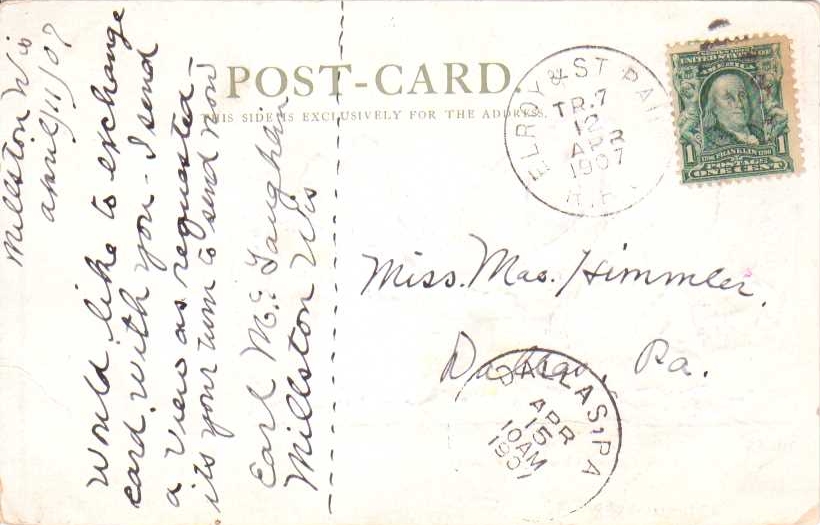 POST-CARD.
THIS SIDE IS EXCLUSIVELY FOR THE ADDRESS.
Millston Wis
April 11/07
Would like to exchange
card with you - I send
a view as requested -
its your turn to send now
Earl Mc. Laughlin
Millston Wis
ELROY & ST PAUL
TR.7
12
APR
1907
R.P.O.
UNITED STATES OF
AMERICA
1
1706 FRANKLIN 1790
1
POSTAGE
ONE CENT
Miss. Mae. Himmler.
Dallas, Pa.
DALLAS, PA
APR
15
10AM
1907